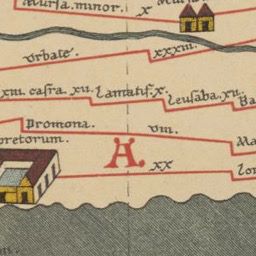 Mursa minor. x
Urbate. xxxiii.
xiii. casra. xii. Lamatis. x. Leusaba. xii. Ba
Promona. viii. Ma
pretorum. A. xx Lon